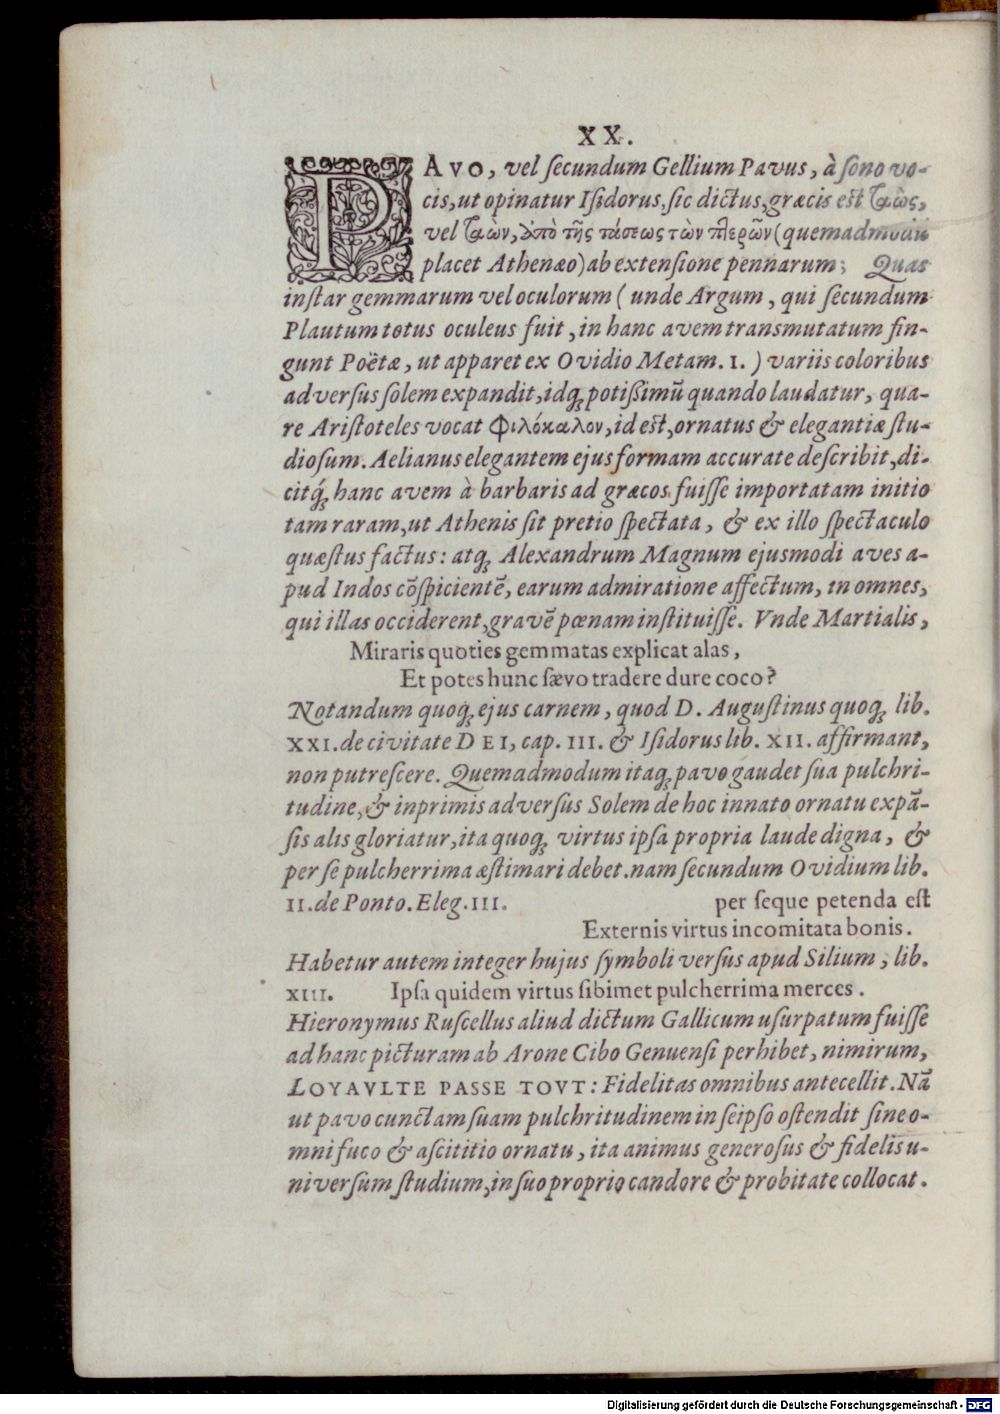 XX.
PAVO, vel ſecundum Gellium Pavus, à ſono vo-
cis, ut opinatur Iſidorus, ſic dictus, græcis est ταὼς,
vel ταὼν, ἀπὸ τῆς τάσεως τῶν πτερῶν (quemadmodū
placet Athenæo) ab extenſione pennarum; Quas
inſtar gemmarum vel oculorum (unde Argum, qui ſecundum
Plautum totus oculeus fuit, in hanc avem transmutatum fin-
gunt Poëtæ, ut apparet ex Ovidio Metam. 1.) variis coloribus
adverſus ſolem expandit, idq́; potißimū quando laudatur, qua-
re Ariſtoteles vocat Φιλόκαλον, id est, ornatus & elegantiæ ſtu-
dioſum. Aelianus elegantem ejus formam accurate deſcribit, di-
citq́; hanc avem à barbaris ad græcos fuiſſe importatam initio
tam raram, ut Athenis ſit pretio ſpectata, & ex illo ſpectaculo
quæſtus factus: atq; Alexandrum Magnum ejusmodi aves a-
pud Indos cōſpicientē, earum admiratione affectum, in omnes,
qui illas occiderent, gravē pœnam inſtituiſſe. Vnde Martialis,
Miraris quoties gemmatas explicat alas,
Et potes hunc ſævo tradere dure coco?
Notandum quoq; ejus carnem, quod D. Auguſtinus quoq; lib.
XXI. de civitate DEI, cap. III. & Iſidorus lib. XII. affirmant,
non putreſcere. Quemadmodum itaq; pavo gaudet ſua pulchri-
tudine, & inprimis adverſus Solem de hoc innato ornatu expā-
ſis alis gloriatur, ita quoq; virtus ipſa propria laude digna, &
per ſe pulcherrima æſtimari debet. nam ſecundum Ovidium lib.
II. de Ponto. Eleg. III. per ſeque petenda eſt
Externis virtus incomitata bonis.
Habetur autem integer hujus ſymboli verſus apud Silium, lib.
XIII. Ipſa quidem virtus ſibimet pulcherrima merces.
Hieronymus Ruſcellus aliud dictum Gallicum uſurpatum fuiſſe
ad hanc picturam ab Arone Cibo Genuenſi perhibet, nimirum,
LOYAVLTE PASSE TOVT: Fidelitas omnibus antecellit. Nā
ut pavo cunctam ſuam pulchritudinem in ſeipſo oſtendit ſine o-
mni fuco & aſcititio ornatu, ita animus generoſus & fidelis u-
niverſum ſtudium, in ſuo proprio candore & probitate collocat.
Digitalisierung gefördert durch die Deutsche Forschungsgemeinschaft - DFG